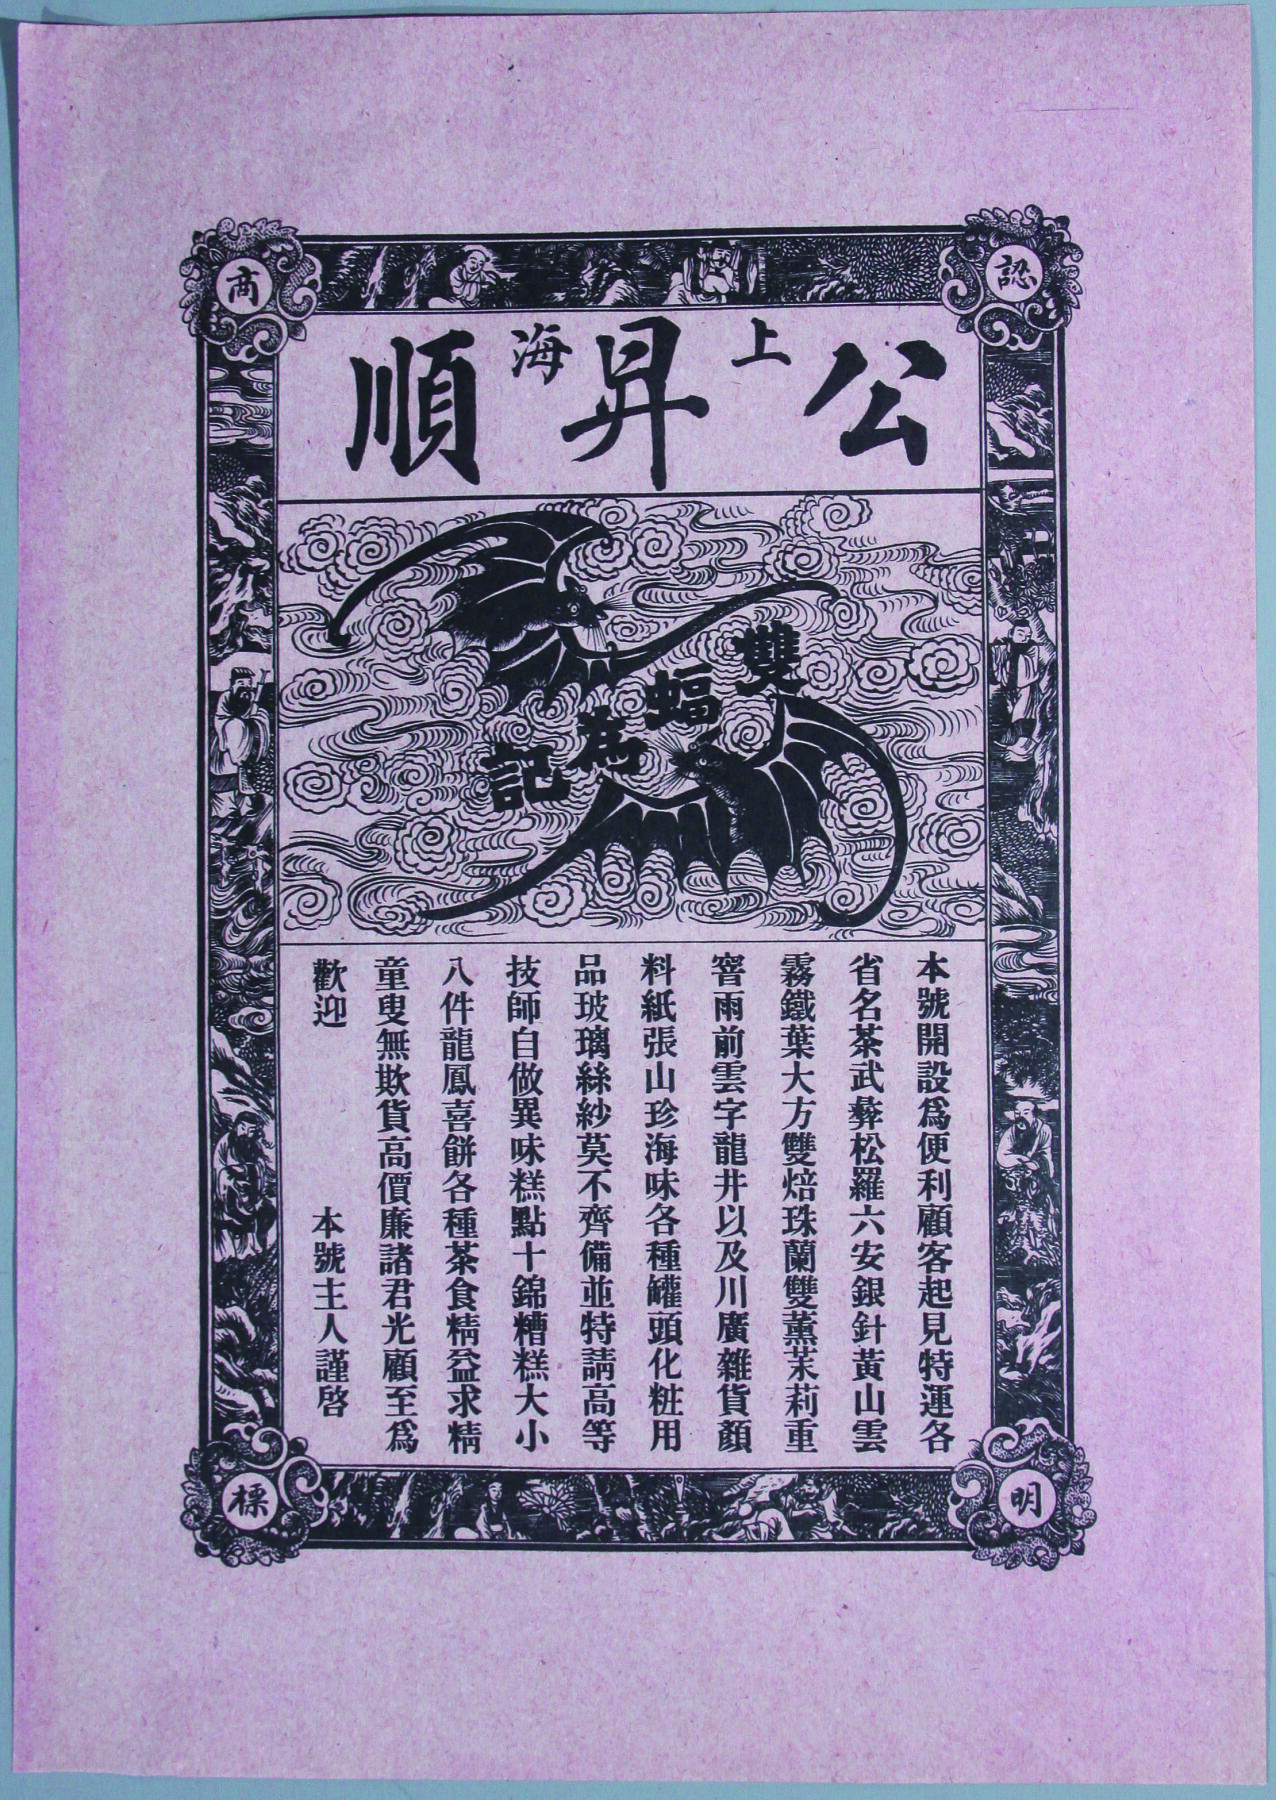 認明商標
上海
公昇順
雙蝠為記
本號開設爲便利顧客起見特運各
省名茶武彝松羅六安銀針黃山雲
霧鐵葉大方雙焙珠蘭雙薰茉莉重
窨雨前雲字龍井以及川廣雜貨顏
料紙張山珍海味各種罐頭化粧用
品玻璃絲紗莫不齊備並特請高等
技師自做異味糕點十錦糟糕大小
八件龍鳳喜餅各種茶食精益求精
童叟無欺貨高價廉諸君光顧至爲
歡迎
本號主人謹啓